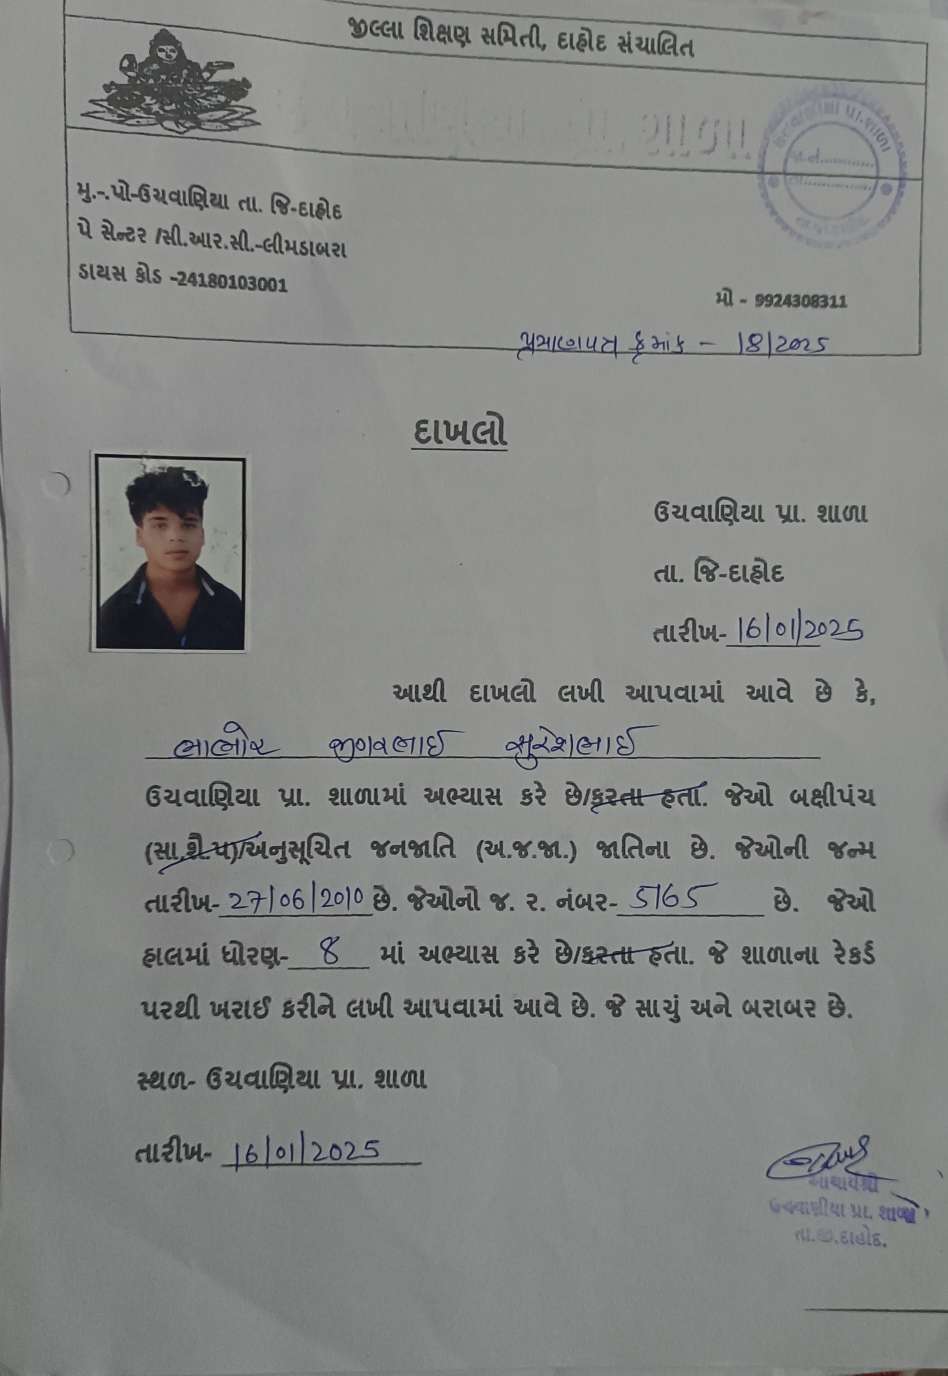 જીલ્લા શિક્ષણ સમિતી, દાહોદ સંચાલિત
મુ.-.પો-ઉચવાણિયા તા. જિ-દાહોદ
પે સેન્ટર /સી.આર.સી.-લીમડાબરા
ડાયસ કોડ -24180103001
મો - 9924308311
પ્રમાણપત્ર ક્રમાંક - 18/2025
દાખલો
ઉચવાણિયા પ્રા. શાળા
તા. જિ-દાહોદ
તારીખ- 16/01/2025
આથી દાખલો લખી આપવામાં આવે છે કે,
ભાભોર જીગરભાઈ સુરેશભાઈ
ઉચવાણિયા પ્રા. શાળામાં અભ્યાસ કરે છે/કરતા હતા. જેઓ બક્ષીપંચ
(સા.શૈ.પ)/અનુસૂચિત જનજાતિ (અ.જ.જા.) જાતિના છે. જેઓની જન્મ
તારીખ- 27/06/2010 છે. જેઓનો જ. ર. નંબર- 5165 છે. જેઓ
હાલમાં ધોરણ- 8 માં અભ્યાસ કરે છે/કરતા હતા. જે શાળાના રેકર્ડ
પરથી ખરાઈ કરીને લખી આપવામાં આવે છે. જે સાચું અને બરાબર છે.
સ્થળ- ઉચવાણિયા પ્રા. શાળા
તારીખ- 16/01/2025
આચાર્યશ્રી
ઉચવાણીયા પ્રા. શાળા
તા.જી.દાહોદ.